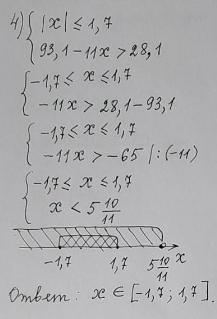 4) { |x| ≤ 1,7
93,1 - 11x > 28,1
{ -1,7 ≤ x ≤ 1,7
-11x > 28,1 - 93,1
{ -1,7 ≤ x ≤ 1,7
-11x > -65 | : (-11)
{ -1,7 ≤ x ≤ 1,7
x < 5 10/11
-1,7 1,7 5 10/11 x
Ответ: x ∈ [-1,7; 1,7].